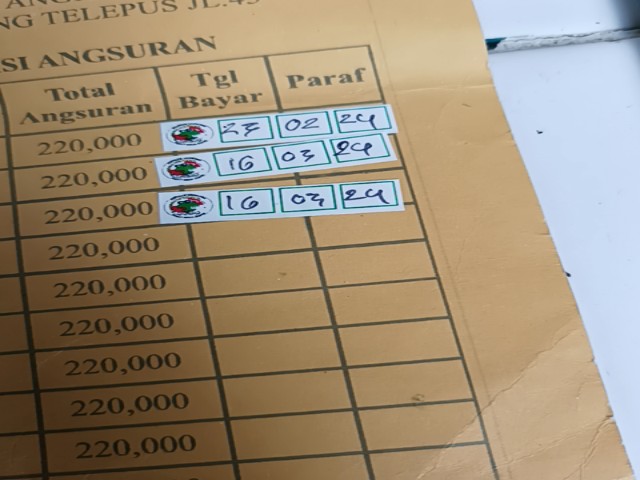 NG TELEPUS JL.45
SI ANGSURAN
Total Angsuran Tgl Bayar Paraf
220,000 27 02 24
220,000 16 03 24
220,000 16 03 24
220,000
220,000
220,000
220,000
220,000
220,000